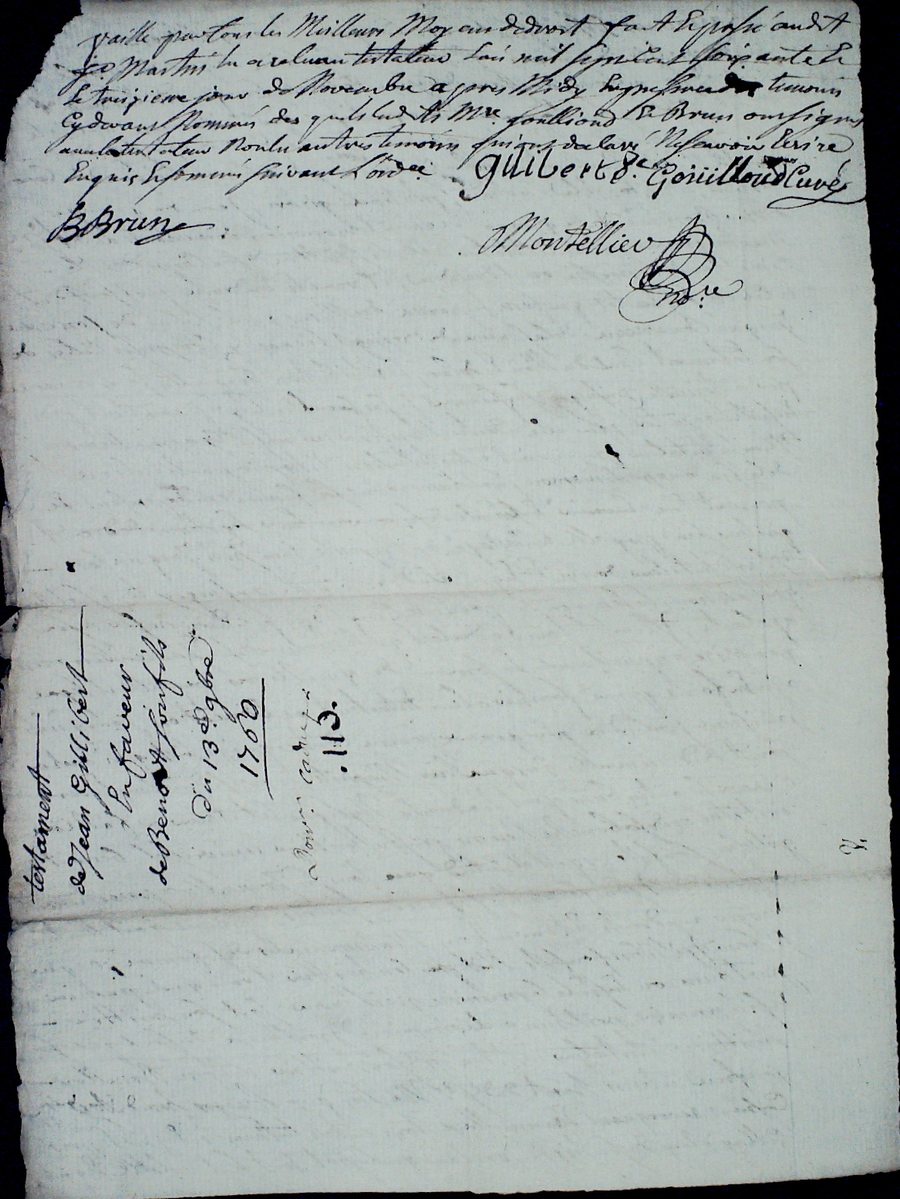 vaille par tous les Meilleurs Moyens de droit fait & passé audit
Martin L'an mil sept cent soixante &
Le treizieme jour de Novembre apres Midy En presence des temoins
Cydevant Nommés des quels ledits Mre gouilloud & Brun ont signé
avec le testateur Non les autres temoins qui ont declaré Ne sçavoir Ecrire
Enquis & sommés suivant L'ordce
gilibert Gouilloud Curé
B Brun
Montellier
Nore
testament
de Jean Gillibert
En faveur
de Benoit son fils
du 13e 9bre
1760
Pour
.113.